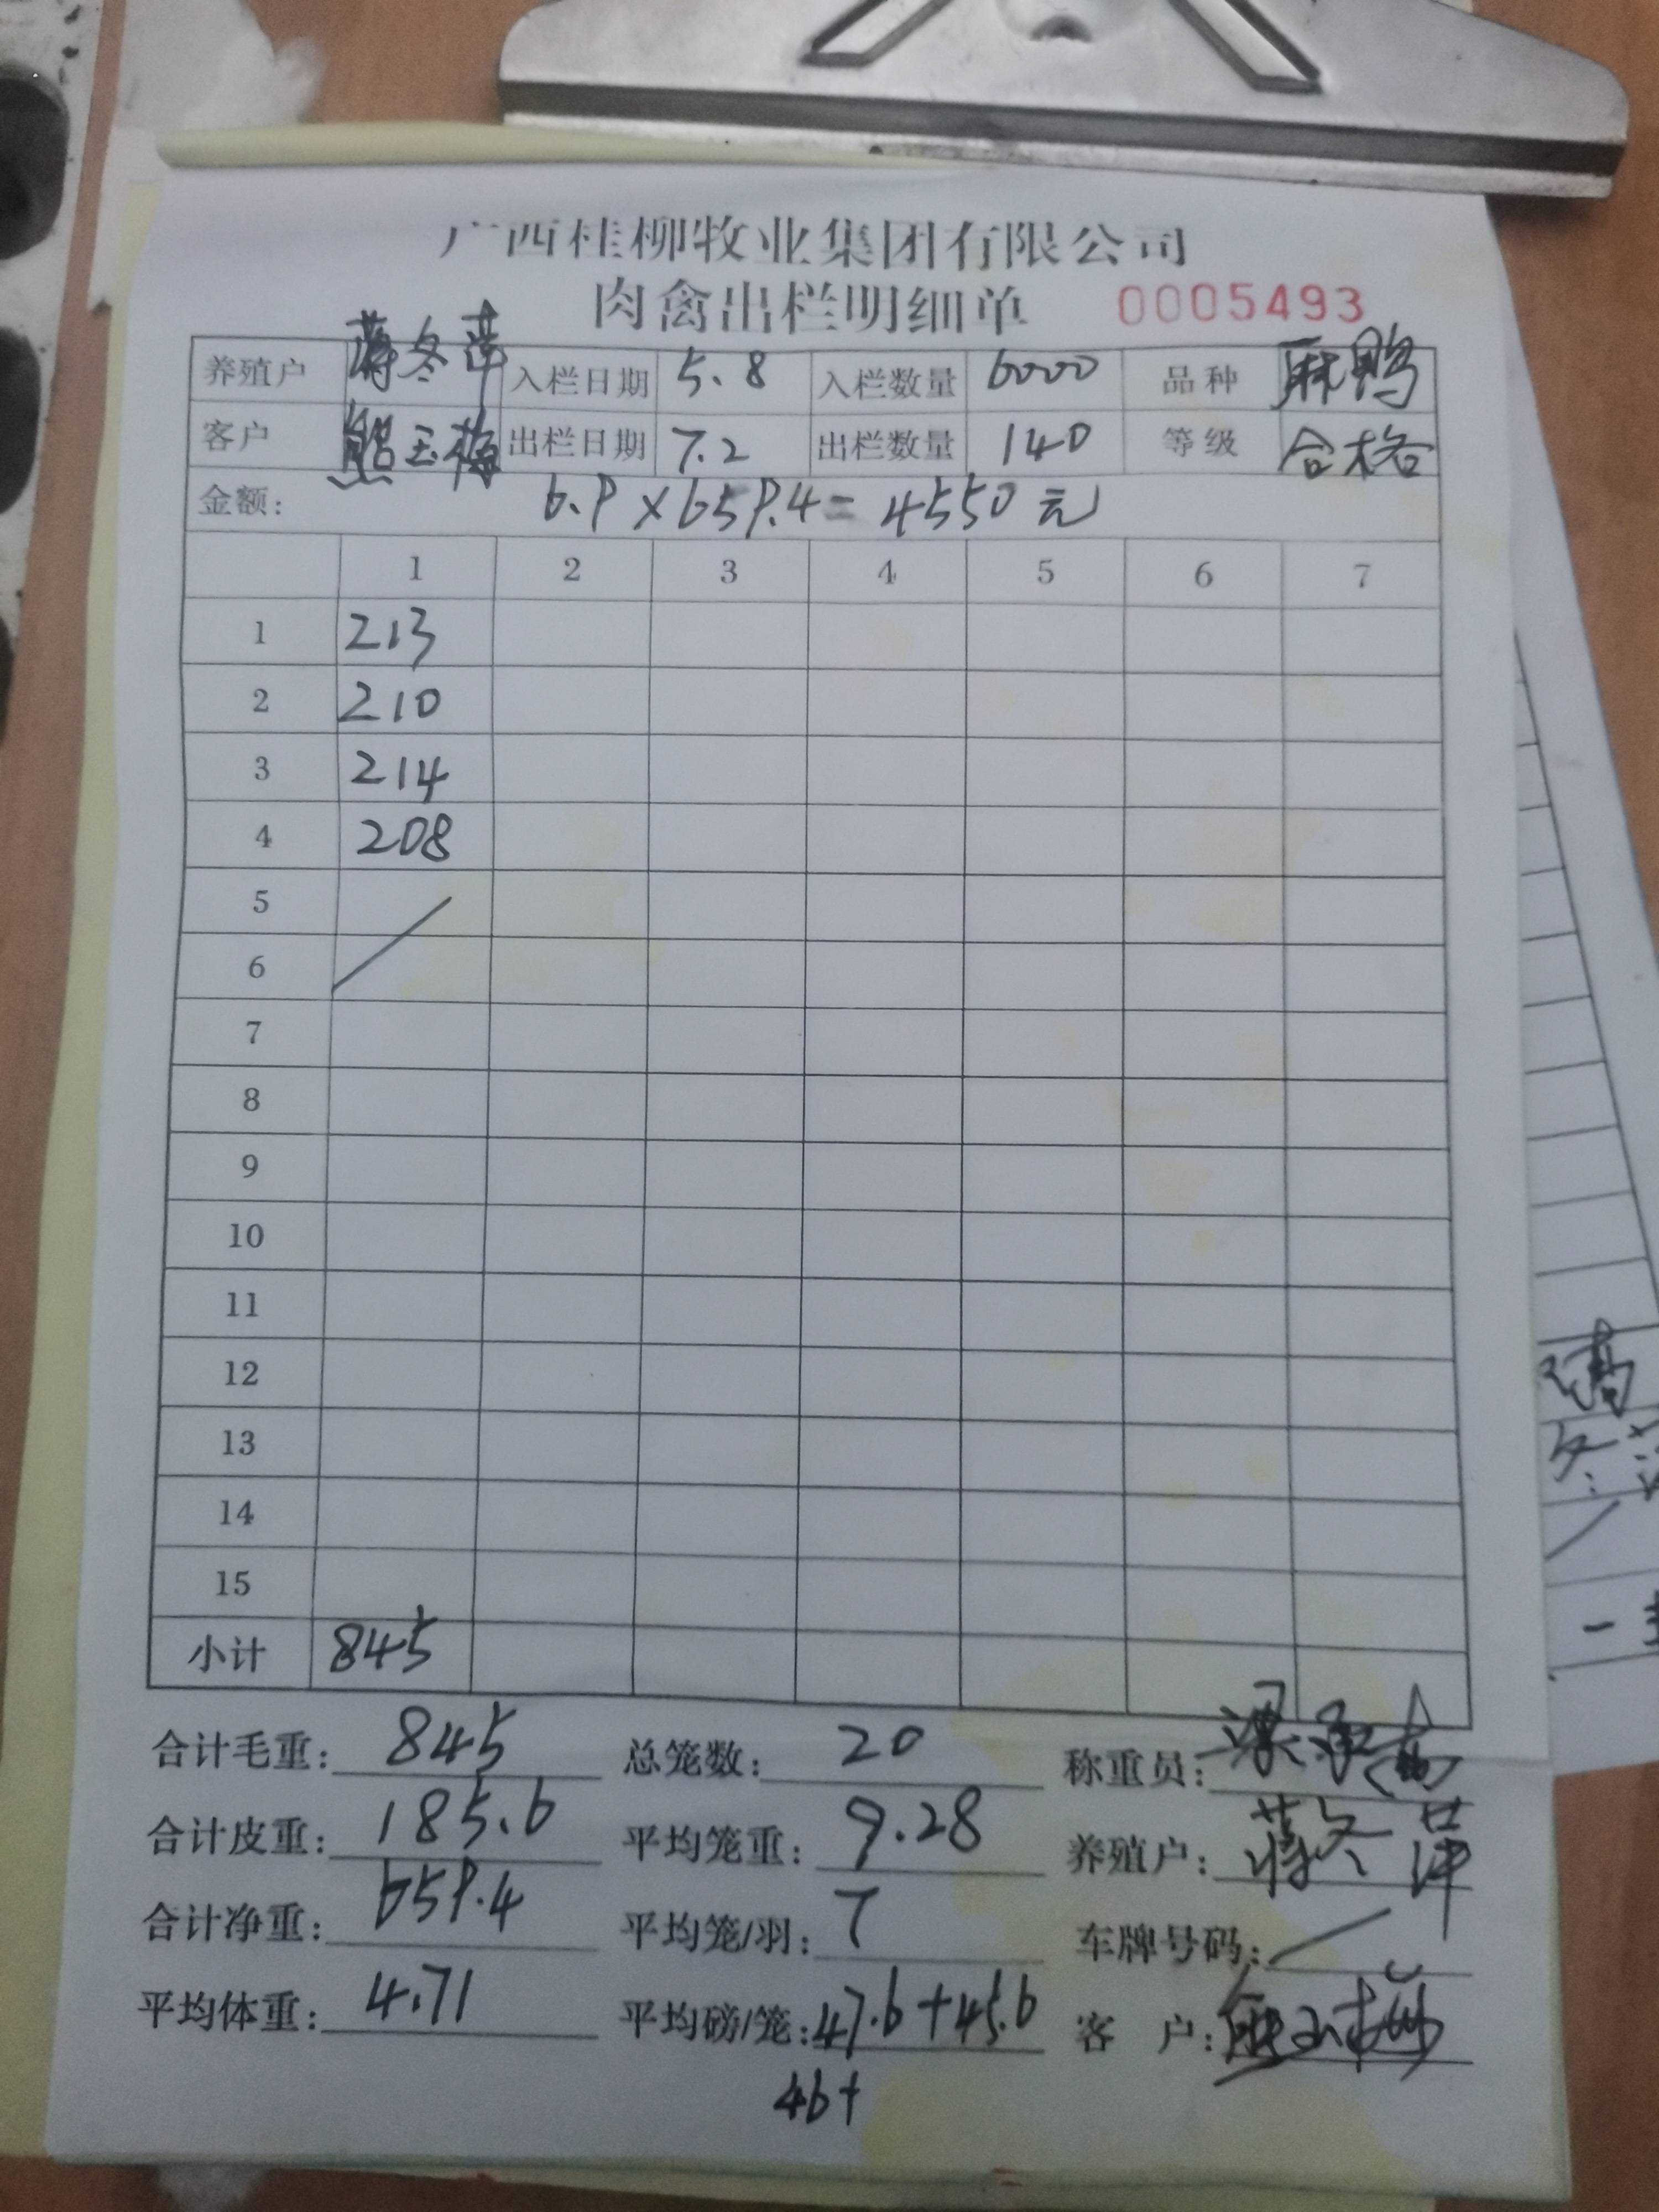 广西桂柳牧业集团有限公司
肉禽出栏明细单 0005493
养殖户 蒋冬萍 入栏日期 5.8 入栏数量 6000 品种 麻鸭
客户 熊玉梅 出栏日期 7.2 出栏数量 140 等级 合格
金额: 6.9×659.4=4550元
1 2 3 4 5 6 7
1 213
2 210
3 214
4 208
5
6
7
8
9
10
11
12
13
14
15
小计 845
合计毛重: 845 总笼数: 20 称重员:
合计皮重: 185.6 平均笼重: 9.28 养殖户: 蒋冬萍
合计净重: 659.4 平均笼/羽: 7 车牌号码:
平均体重: 4.71 平均磅/笼: 47.6+45.6 客户: 熊玉梅
46+